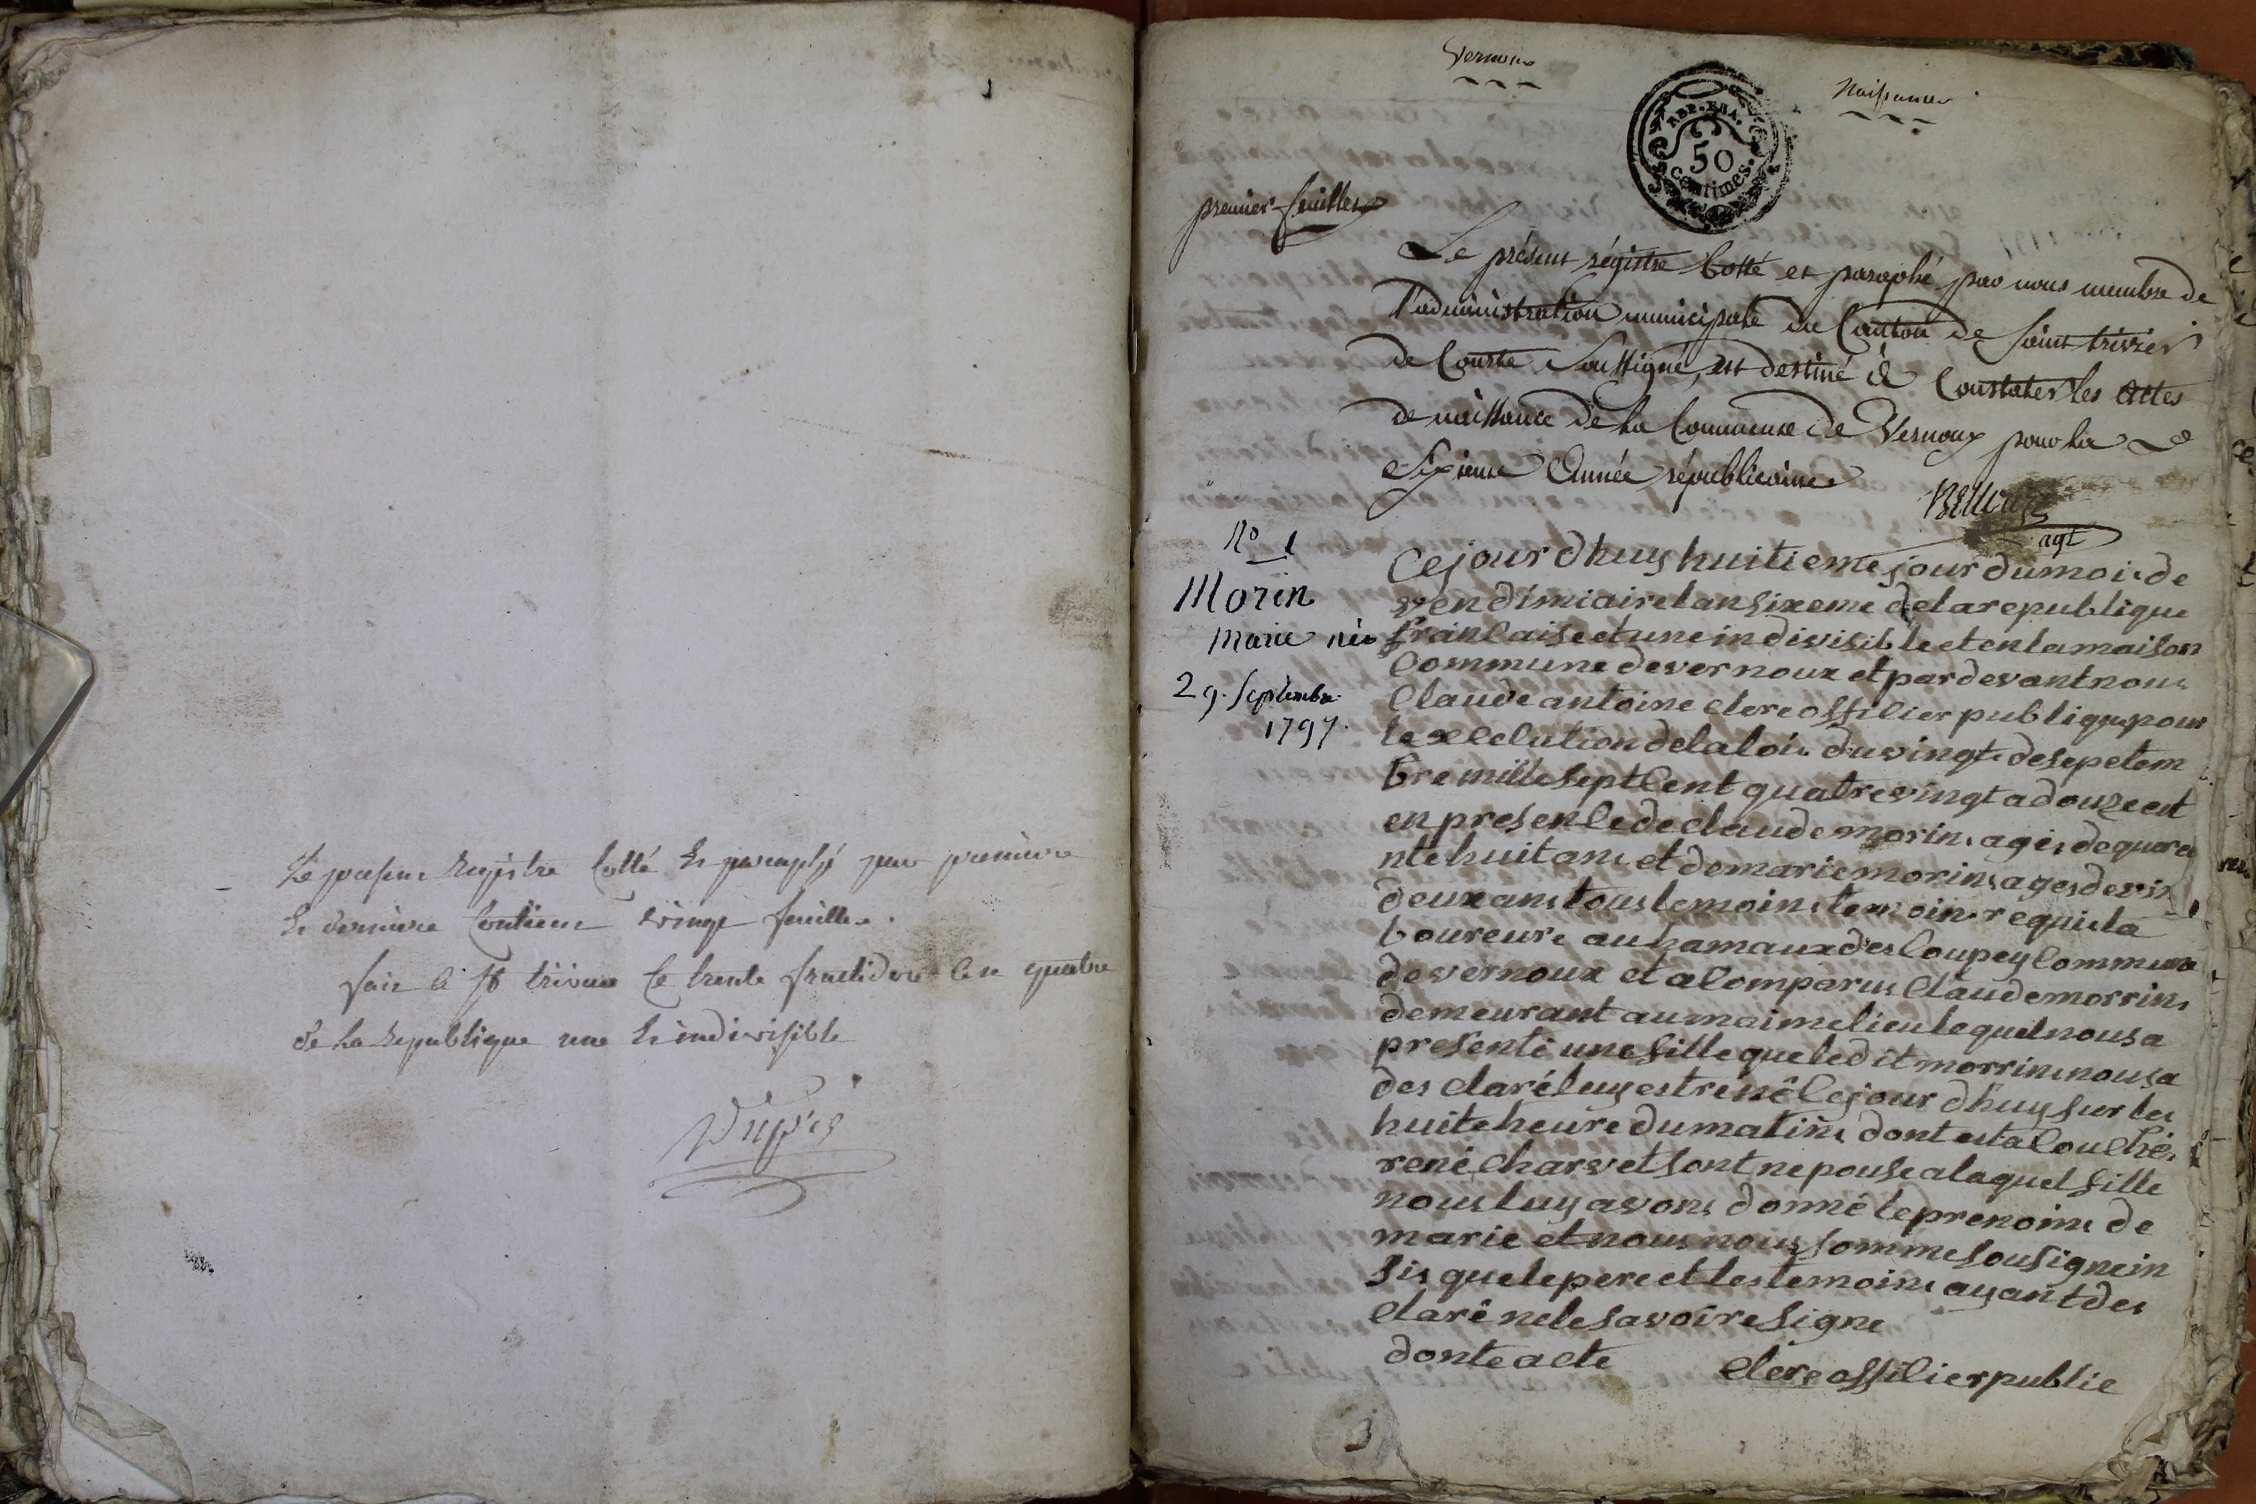 Le present Registre Cotté et paraphé par premiere
et derniere Contient vingt feuilles.
fait à St trivier le trente fructidor l'an quatre
de la Republique une et indivisible
Vernoux
Naissances
REP. FRA.
50
centimes.
premier feuillet
Le présent régistre Cotté et paraphé par nous membre de
l'administration municipale du Canton de Saint trivier
de Courte Soussigné, est destiné à Constater les actes
de naissance de la Commune de Vernoux pour la
Sixieme Année républicaine
agt
No 1
Morin
Marie née
29. Septembre
1797.
Cejour dhuy huitieme jour du moi de
vendimiaire lan sixeme de la republique
francaise et une indivisible et en la maison
Commune de vernoux et par devant nous
Claude antoine clerc officier publique pour
lexecclution de la loi du vingt de sepetem
bre mille sept cent quatre vingt a douze est
en presence de claude morin agé de quara
nte huit ans et de marie morin ages de vin
deux ans tous temoins temoin requis la
boureure au hamaux des Coupey Commune
de vernoux et a Comparus Claude morrin
demeurant au maime lieu lequel nous a
presenté une fille que ledit morrin nous a
des claré luy estre né cejour dhuy sur les
huite heure du matin dont esta Couché
rené Charvet sont nepouse a laquel fille
nous luy avons donné le prenoim de
marie et nous nous somme sousigne in
sis que le pere et les temoins ayant des
claré ne le savoire signe
donte acte
clerc officier public